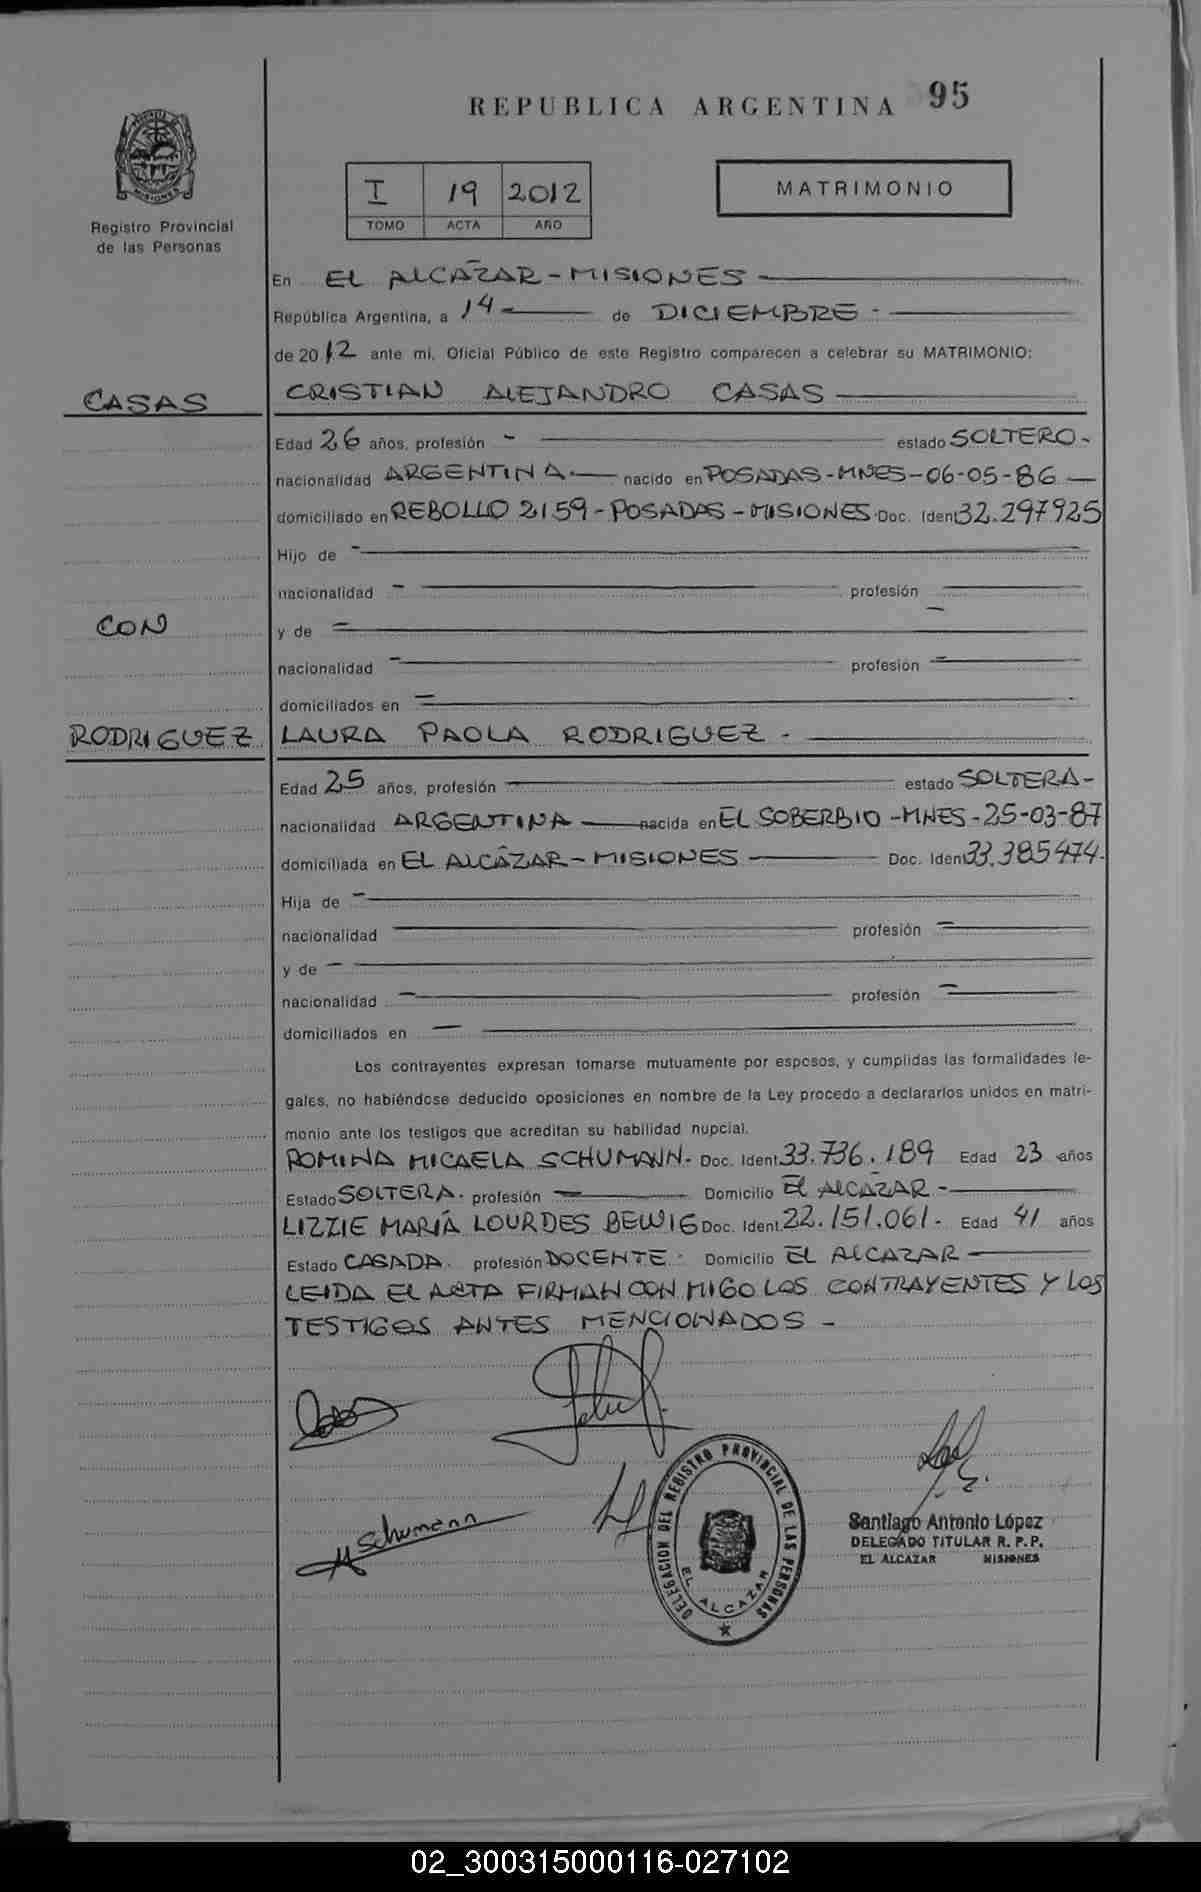 REPUBLICA ARGENTINA 95
PROVINCIA DE MISIONES
Registro Provincial
de las Personas
I 19 2012
TOMO ACTA AÑO
MATRIMONIO
En EL ALCAZAR - MISIONES
República Argentina, a 14 de DICIEMBRE -
de 2012 ante mi, Oficial Público de este Registro comparecen a celebrar su MATRIMONIO:
CASAS
CRISTIAN ALEJANDRO CASAS
Edad 26 años, profesión - estado SOLTERO -
nacionalidad ARGENTINA. nacido en POSADAS - MNES - 06-05-86
domiciliado en REBOLLO 2159 - POSADAS - MISIONES. Doc. Ident 32.297925
Hijo de -
nacionalidad - profesión -
CON
y de -
nacionalidad - profesión -
domiciliados en -
RODRIGUEZ
LAURA PAOLA RODRIGUEZ -
Edad 25 años, profesión - estado SOLTERA -
nacionalidad ARGENTINA nacida en EL SOBERBIO - MNES - 25-03-87
domiciliada en EL ALCÁZAR - MISIONES Doc. Ident 33.385474.
Hija de -
nacionalidad profesión -
y de -
nacionalidad - profesión -
domiciliados en -
Los contrayentes expresan tomarse mutuamente por esposos, y cumplidas las formalidades le-
gales, no habiéndose deducido oposiciones en nombre de la Ley procedo a declararlos unidos en matri-
monio ante los testigos que acreditan su habilidad nupcial.
ROMINA MICAELA SCHUMANN. Doc. Ident. 33.736.189 Edad 23 años
Estado SOLTERA. profesión - Domicilio EL ALCAZAR -
LIZZIE MARÍA LOURDES BEWIG Doc. Ident. 22.151.061. Edad 41 años
Estado CASADA. profesión DOCENTE. Domicilio EL ALCAZAR
LEIDA EL ACTA FIRMAN CON MIGO LOS CONTRAYENTES Y LOS
TESTIGOS ANTES MENCIONADOS -
Schumann
DELEGACION DEL REGISTRO PROVINCIAL DE LAS PERSONAS
EL ALCAZAR
Santiago Antonio López
DELEGADO TITULAR R. P. P.
EL ALCAZAR MISIONES
02_300315000116-027102